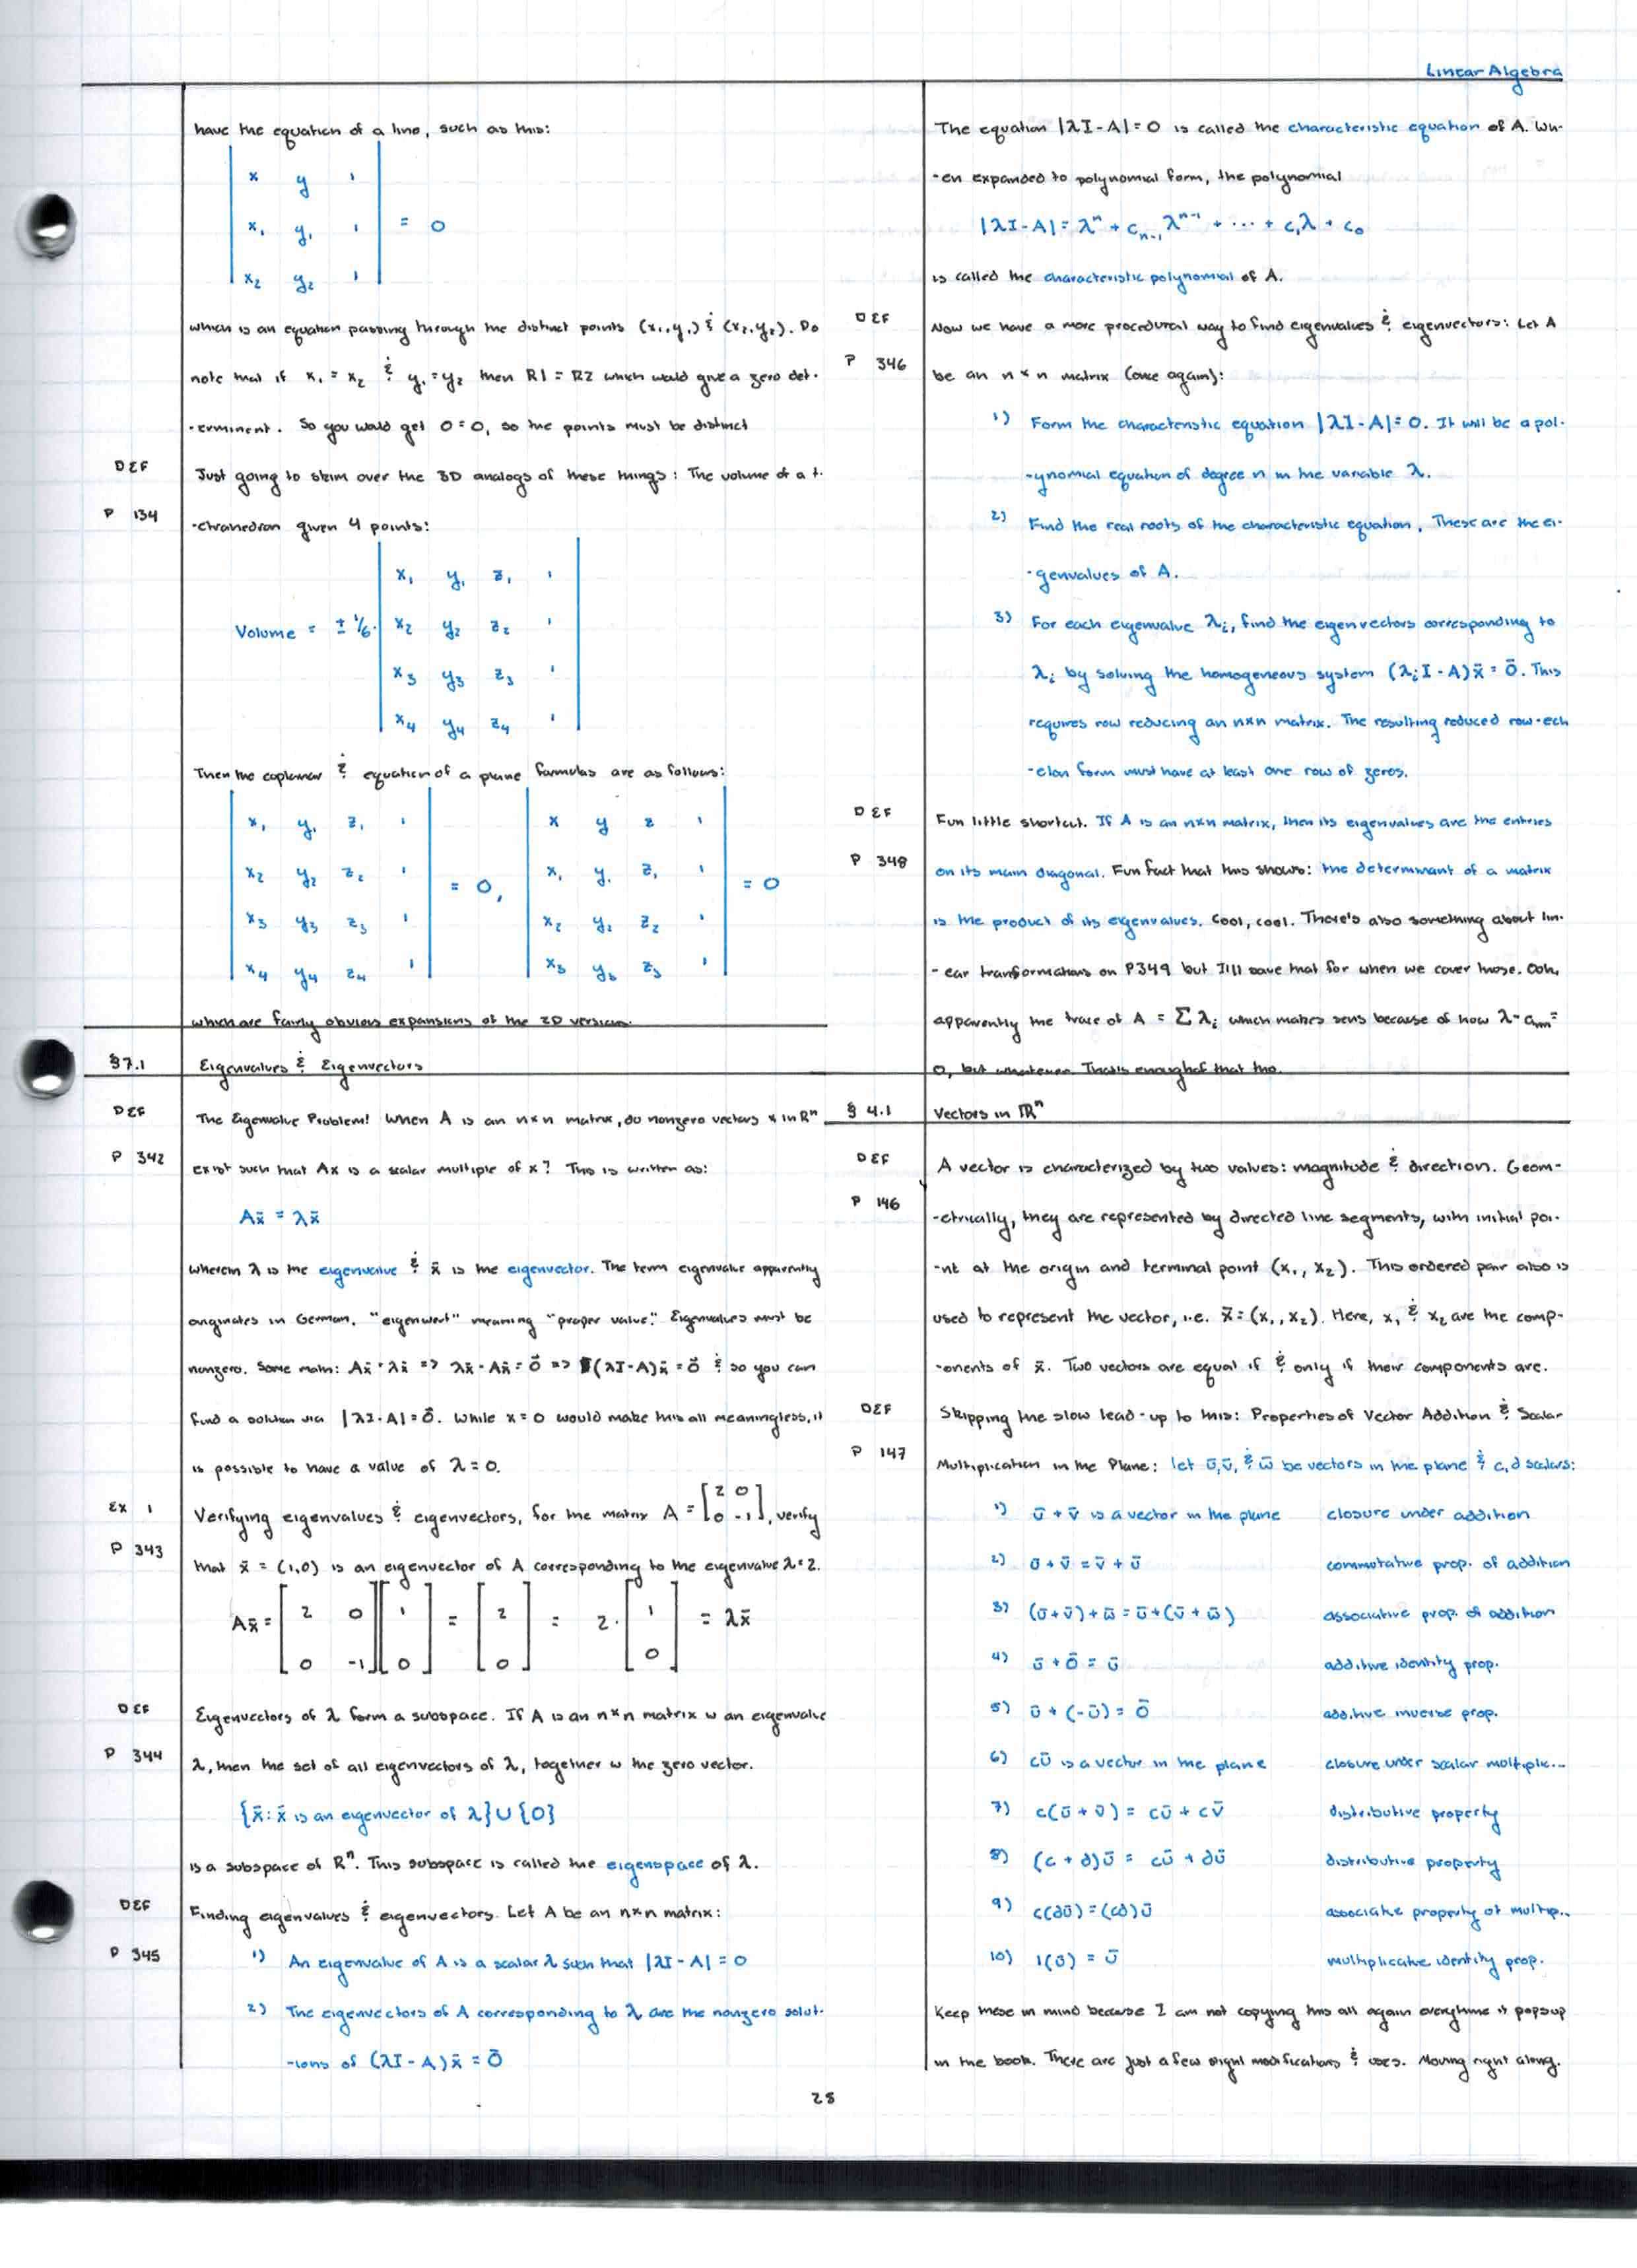 Linear Algebra
have the equation of a line, such as this:
x y 1
x₁ y₁ 1 = 0
x₂ y₂ 1
which is an equation passing through the distinct points (x₁,y₁) & (x₂,y₂). Do
note that if x₁ = x₂ & y₁ = y₂ then R1 = R2 which would give a zero det-
-erminent. So you would get 0=0, so the points must be distinct
DEF Just going to skim over the 3D analogs of these things: The volume of a t-
P 134 -etrahedron given 4 points:
x₁ y₁ z₁ 1
Volume = ± 1/6 · x₂ y₂ z₂ 1
x₃ y₃ z₃ 1
x₄ y₄ z₄ 1
Then the coplanar & equation of a plane formulas are as follows:
x₁ y₁ z₁ 1 x y z 1
x₂ y₂ z₂ 1 = 0, x₁ y₁ z₁ 1 = 0
x₃ y₃ z₃ 1 x₂ y₂ z₂ 1
x₄ y₄ z₄ 1 x₃ y₃ z₃ 1
which are fairly obvious expansions of the 2D version.
§7.1 Eigenvalues & Eigenvectors
DEF The Eigenvalue Problem! When A is an n×n matrix, do nonzero vectors x in Rⁿ
P 342 exist such that Ax is a scalar multiple of x? This is written as:
Ax̄ = λx̄
wherein λ is the eigenvalue & x̄ is the eigenvector. The term eigenvalue apparently
originates in German, "eigenwert" meaning "proper value". Eigenvalues must be
nonzero. Some math: Ax̄ = λx̄ => λx̄ - Ax̄ = 0̄ => (λI-A)x̄ = 0̄ & so you can
find a solution via |λI-A| = 0̄. While x=0 would make this all meaningless, it
is possible to have a value of λ=0.
Ex 1 Verifying eigenvalues & eigenvectors, for the matrix A = [2 0
0 -1], verify
P 343 that x̄ = (1,0) is an eigenvector of A corresponding to the eigenvalue λ=2.
Ax̄ = [2 0][1] = [2] = 2·[1] = λx̄
[0 -1][0] [0] [0]
DEF Eigenvectors of λ form a subspace. If A is an n×n matrix w an eigenvalue
P 344 λ, then the set of all eigenvectors of λ, together w the zero vector.
{x̄: x̄ is an eigenvector of λ} ∪ {0}
is a subspace of Rⁿ. This subspace is called the eigenspace of λ.
DEF Finding eigenvalues & eigenvectors. Let A be an n×n matrix:
P 345 1) An eigenvalue of A is a scalar λ such that |λI - A| = 0
2) The eigenvectors of A corresponding to λ are the nonzero solut-
-ions of (λI - A)x̄ = 0̄
The equation |λI-A|=0 is called the characteristic equation of A. Wh-
-en expanded to polynomial form, the polynomial
|λI-A| = λⁿ + cₙ₋₁λⁿ⁻¹ + ... + c₁λ + c₀
is called the characteristic polynomial of A.
DEF Now we have a more procedural way to find eigenvalues & eigenvectors: Let A
P 346 be an n×n matrix (once again):
1) Form the characteristic equation |λI-A|=0. It will be a pol-
-ynomial equation of degree n in the variable λ.
2) Find the real roots of the characteristic equation. These are the ei-
-genvalues of A.
3) For each eigenvalue λᵢ, find the eigenvectors corresponding to
λᵢ by solving the homogeneous system (λᵢI - A)x̄ = 0̄. This
requires row reducing an n×n matrix. The resulting reduced row-ech
-elon form must have at least one row of zeros.
DEF Fun little shortcut. If A is an n×n matrix, then its eigenvalues are the entries
P 348 on its main diagonal. Fun fact that this shows: the determinant of a matrix
is the product of its eigenvalues. Cool, cool. There's also something about lin-
-ear tranformations on P349 but I'll save that for when we cover those. Ooh,
apparently the trace of A = Σλᵢ which makes sens because of how λ-aₙₙ=
0, but whatever. That's enough of that tho.
§ 4.1 Vectors in ℝⁿ
DEF A vector is characterized by two values: magnitude & direction. Geom-
P 146 -etrically, they are represented by directed line segments, with initial poi-
-nt at the origin and terminal point (x₁, x₂). This ordered pair also is
used to represent the vector, i.e. x̄ = (x₁, x₂). Here, x₁ & x₂ are the comp-
-onents of x̄. Two vectors are equal if & only if their components are.
DEF Skipping the slow lead-up to this: Properties of Vector Addition & Scalar
P 147 Multiplication in the Plane: let ū, v̄, & w̄ be vectors in the plane & c,d scalars:
1) ū + v̄ is a vector in the plane closure under addition
2) ū + v̄ = v̄ + ū commutative prop. of addition
3) (ū+v̄)+w̄ = ū+(v̄+w̄) associative prop. of addition
4) ū + 0̄ = ū additive identity prop.
5) ū + (-ū) = 0̄ additive inverse prop.
6) cū is a vector in the plane closure under scalar multiplic...
7) c(ū + v̄) = cū + cv̄ distributive property
8) (c + d)ū = cū + dū distributive property
9) c(dū) = (cd)ū associative property of multip..
10) 1(ū) = ū multiplicative identity prop.
Keep these in mind because I am not copying this all again everytime it pops up
in the book. There are just a few slight modifications & uses. Moving right along.
28